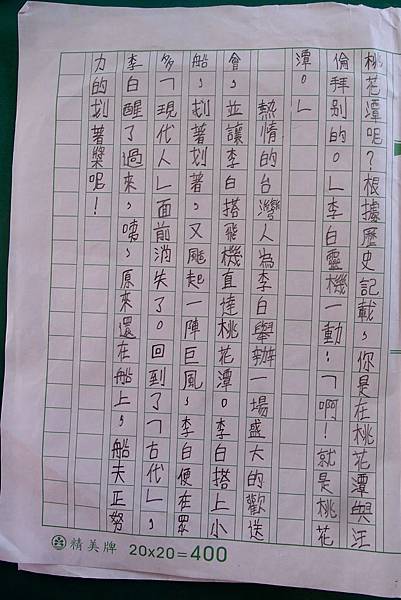 桃花潭呢？根據歷史記載，你是在桃花潭與汪
倫拜別的。」李白靈機一動：「啊！就是桃花
潭。」
熱情的台灣人為李白舉辦一場盛大的歡送
會，並讓李白搭飛機直達桃花潭。李白搭上小
船，划著划著，又颳起一陣巨風，李白便在眾
多「現代人」面前消失了。回到了「古代」，
李白醒了過來，咦，原來還在船上，船夫正努
力的划著槳呢！
精美牌 20x20=400